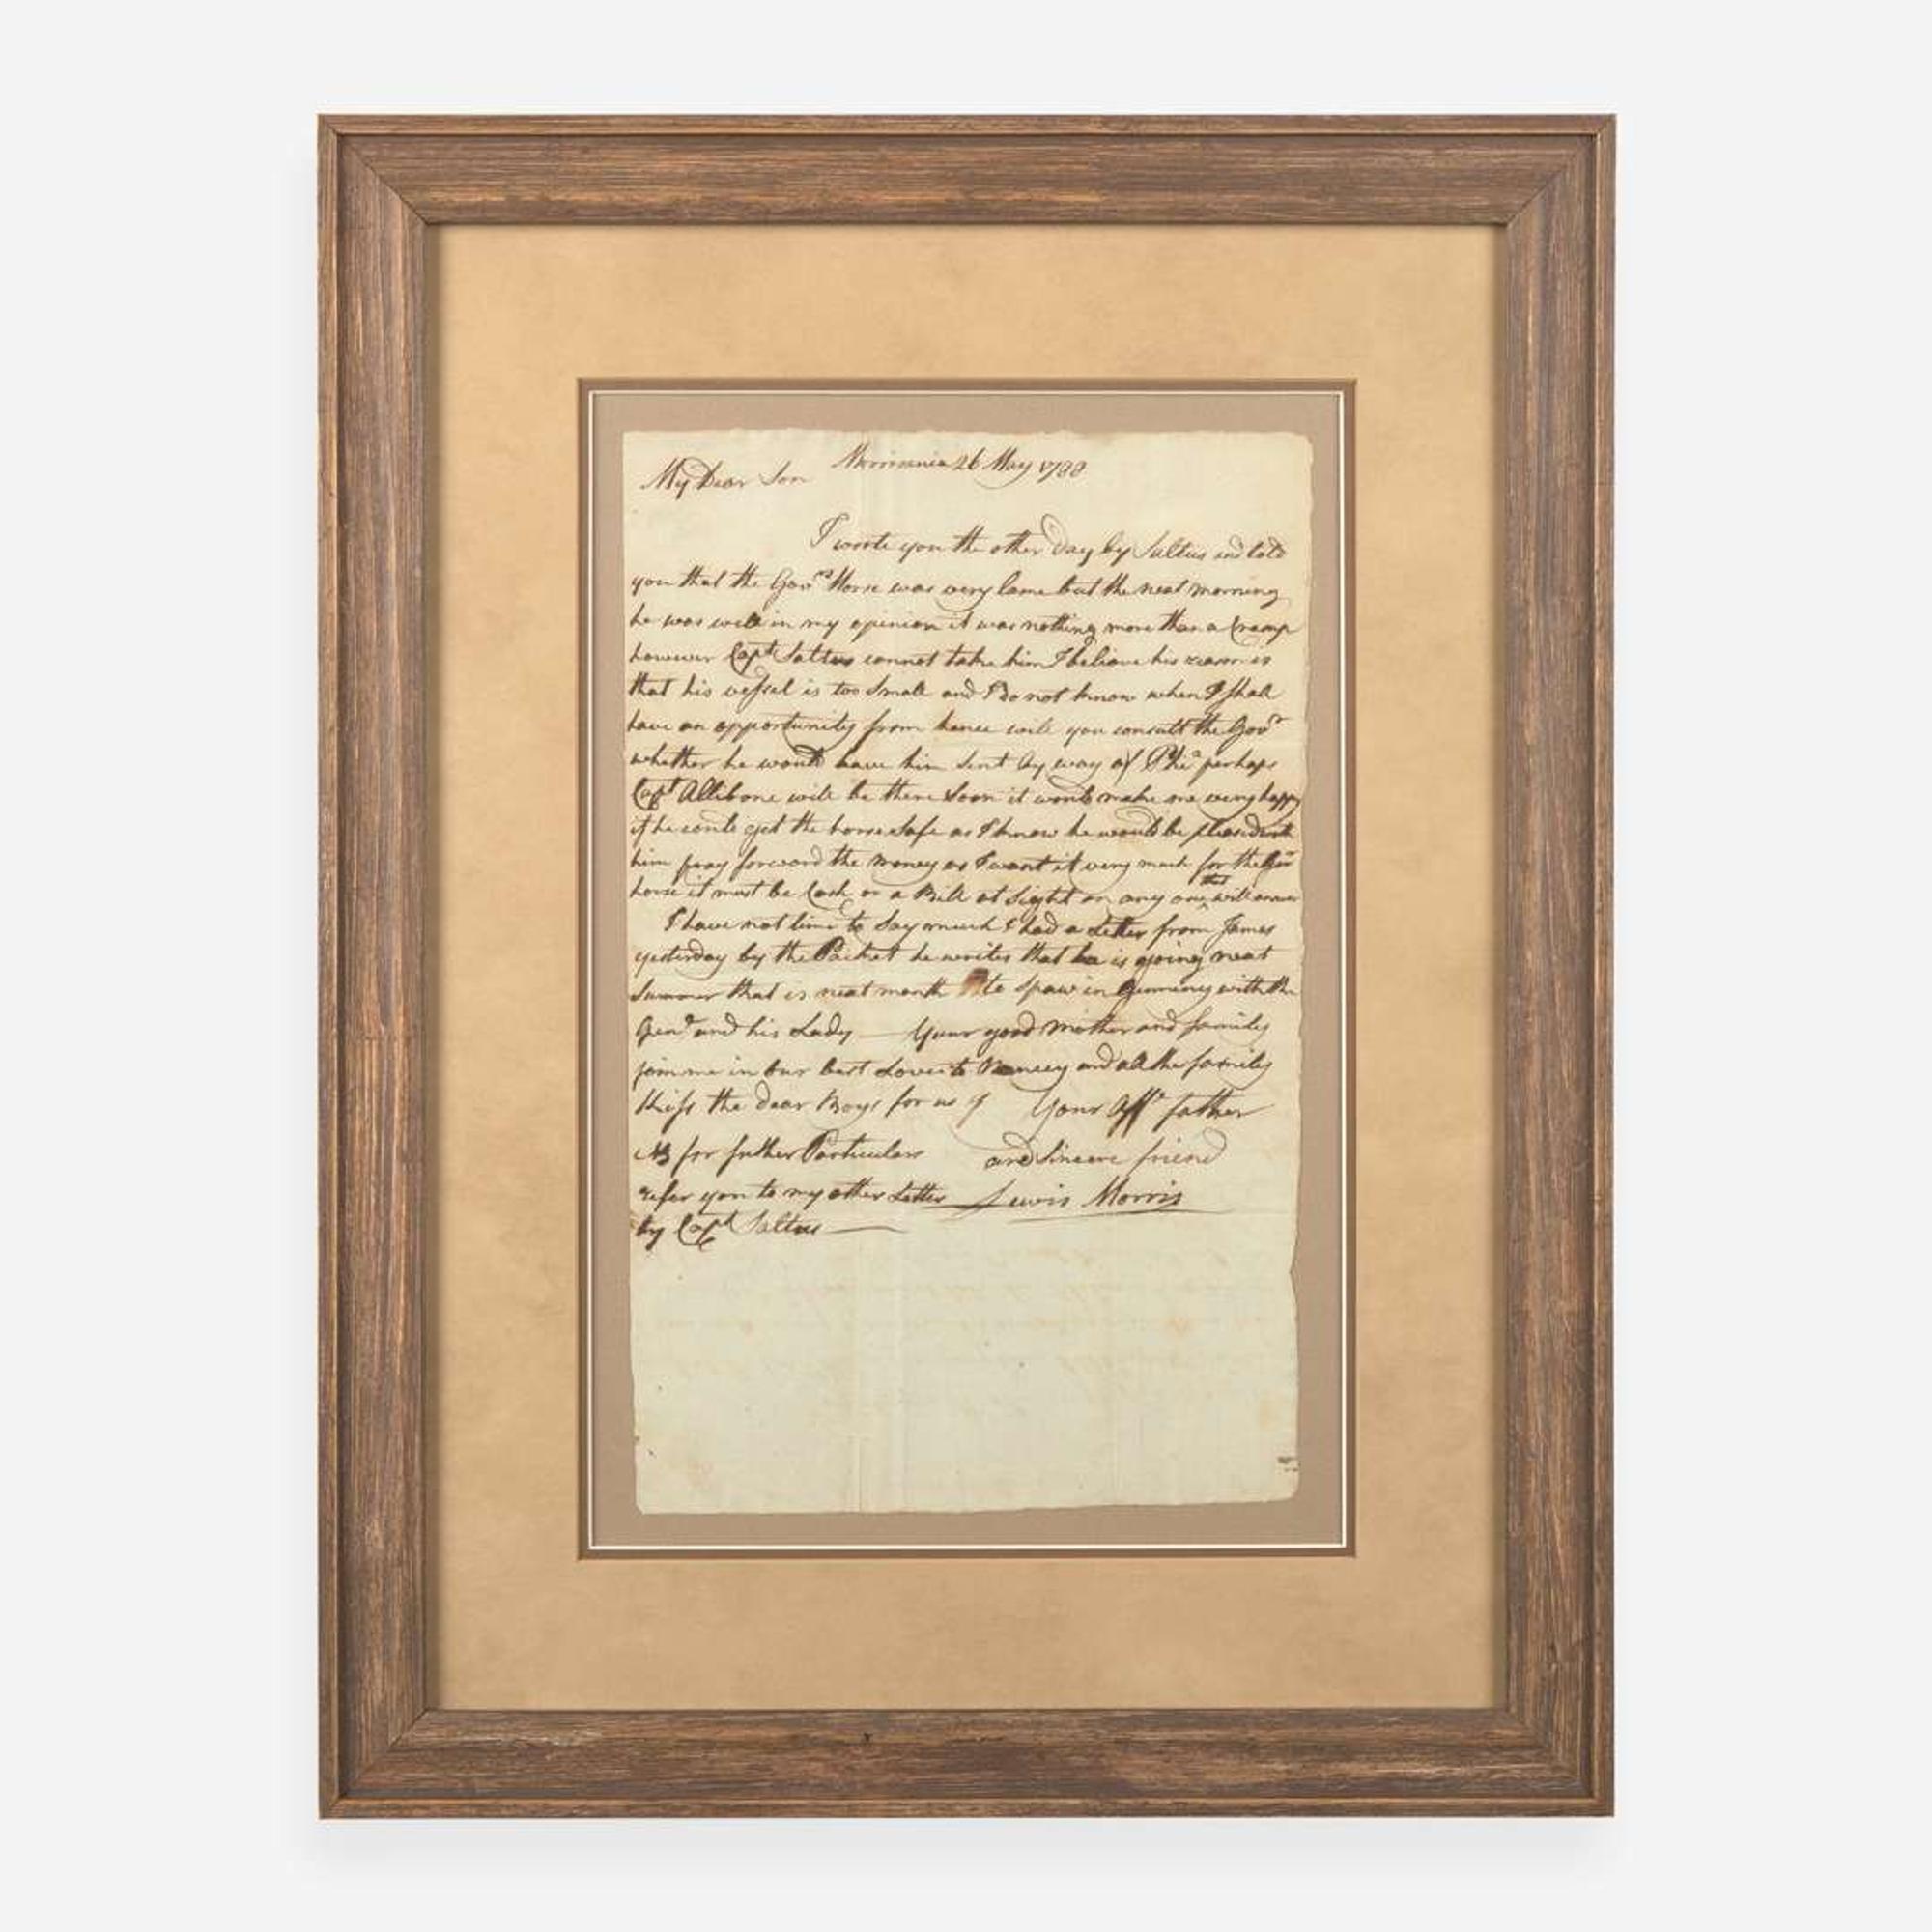 Morrisania 26 May 1788
My Dear Son
I wrote you the other Day by Saltus and told
you that the Govrs Horse was very lame but the next morning
he was well in my opinion it was nothing more than a Cramp
however Capt Saltus cannot take him I believe his reason is
that his vessel is too small and I do not know when I shall
have an opportunity from hence will you consult the Govr
whether he would have him sent by way of Phia perhaps
Capt Allibone will be there soon it would make me very happy
if he could get the horse safe as I know he would be pleased with
him pray forward the money as I want it very much for the Govrs
horse it must be Cash or a Bill at sight on any one that will answer
I have not time to say much I had a Letter from James
yesterday by the Packet he writes that he is going next
Summer that is next month to Spaw in Germiny with the
Genl and his Lady — Your good Mother and family
join me in our best Loves to Nancy and all the family
Kiss the dear Boys for us Your Affe father
NB for futher Particulars and Sincere friend
refer you to my other Letter Lewis Morris
by Capt Saltus —